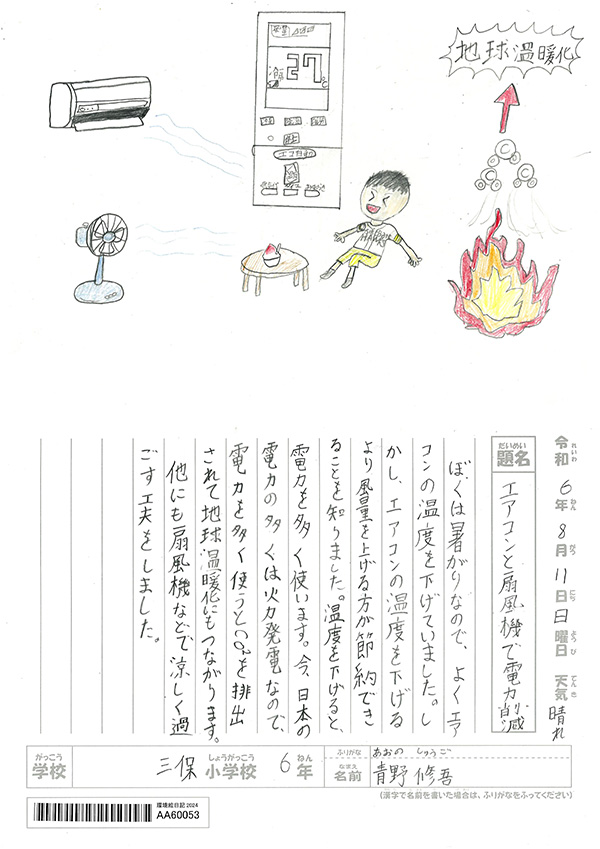 地球温暖化
冷房
27℃
エコ自動
令和6年8月11日日曜日 天気 晴れ
れいわ ねん がつ にち ようび てんき
だいめい
題名 エアコンと扇風機で電力削減
ぼくは暑がりなので、よくエア
コンの温度を下げていました。し
かし、エアコンの温度を下げる
より風量を上げる方が節約でき
ることを知りました。温度を下げると、
電力を多く使います。今、日本の
電力の多くは火力発電なので、
電力を多く使うとCO₂を排出
されて地球温暖化にもつながります。
他にも扇風機などで涼しく過
ごす工夫をしました。
がっこう しょうがっこう ねん
学校 三保 小学校 6年
ふりがな あおの しゅうご
なまえ
名前 青野 修吾
(漢字で名前を書いた場合は、ふりがなをふってください)
環境絵日記2024
AA60053